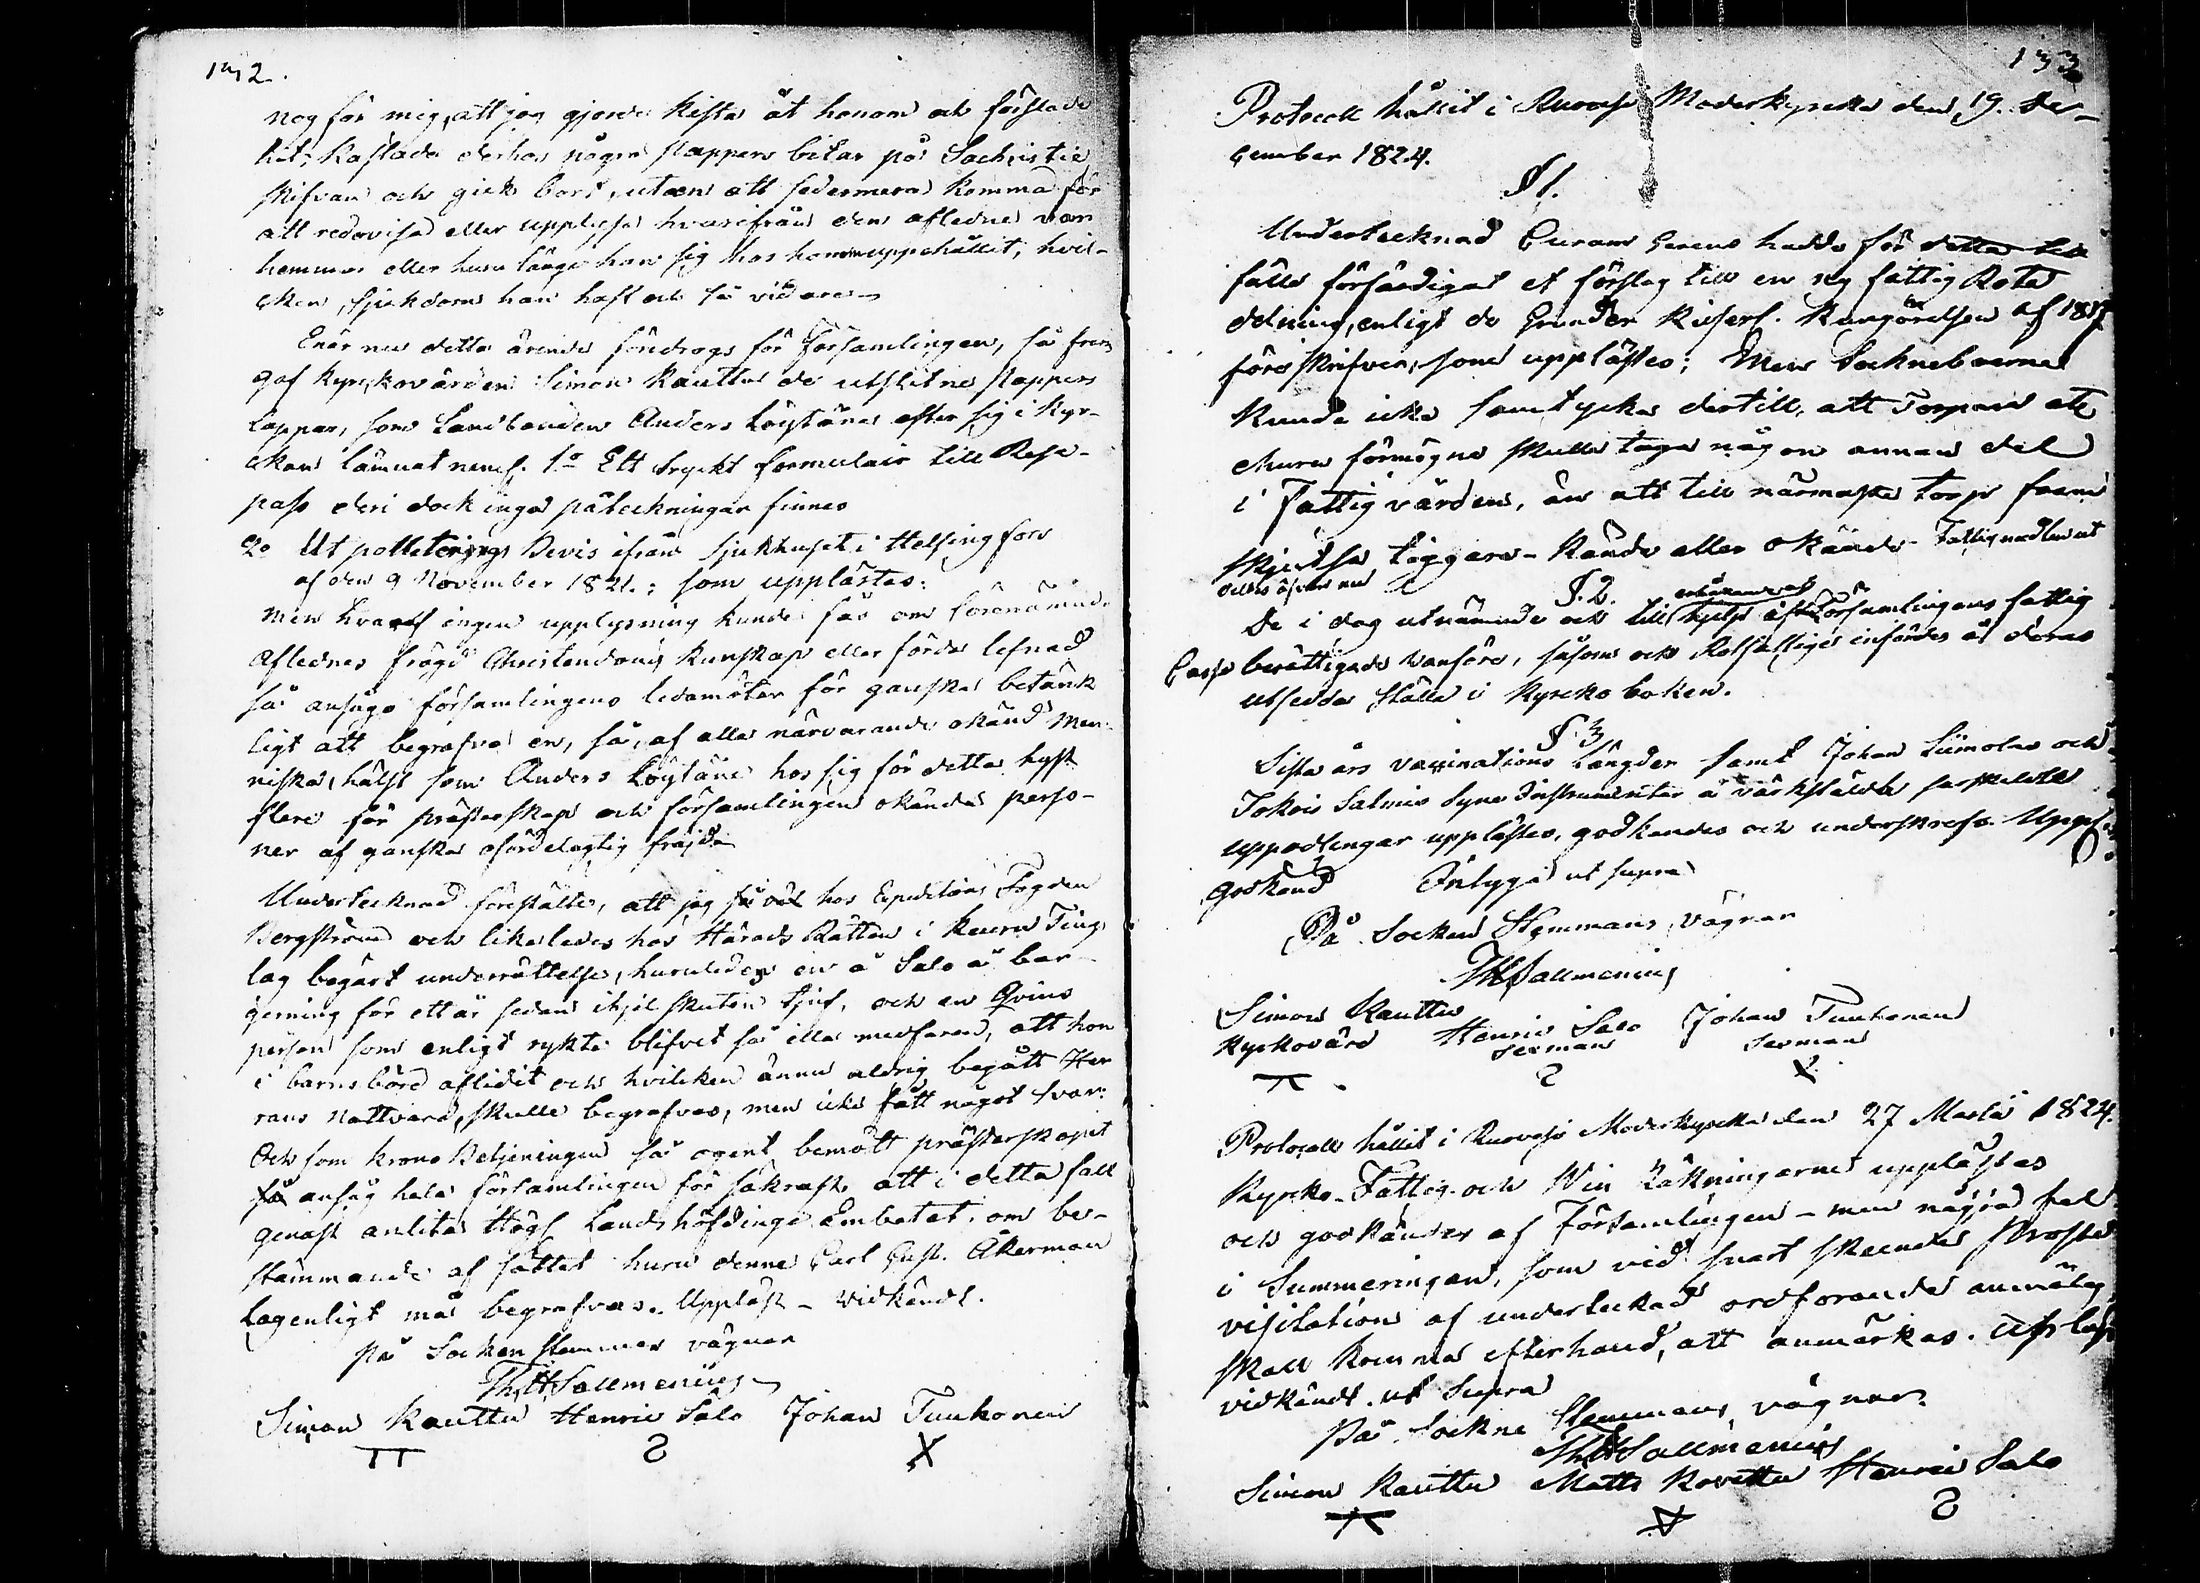 132.
nog för mig, att jag gjorde Kista åt honom och förslade
hit; Kastade derhos några pappers bitar på Sachristie
skifvan och gick bort, utan att sedermera komma för
att redovisa eller upplysa hvarifrån den aflidne var
hemma eller huru länge han sig hos honom uppehållit, hvil-
cken sjukdom han haft och så vidare.
Enär nu detta ärende föredrogs för församlingen, så fram
gaf Kyrckovärden Simon Kauttu de utslitne pappers
Lappar, som Landbonden Anders Löytäne efter sig i Kyr-
ckan lämnat neml. 1o Ett tryckt formulair till Rese-
pass deri dock inga påteckningar finnes
2o Ut polletterings Bevis ifrån Sjukhuset i Helsingfors
af den 9 November 1821.; som upplästes:
men hvaraf ingen upplysning kunde fås om förenämnde
Aflednes frägd Christendoms Kunskap eller förda lefnad
så ansågo församlingens ledamöter för ganska betänk
ligt att begrafva en, så, af alla närvarande okänd Men-
niska, hälst som Anders Löytäne hos sig för detta hyst
flere för prästerskap och församlingen okända perso-
ner af ganska ofördelagtig frejd.
Undertecknad förestälte, att jag så väl hos Expeditions Fogden
Bergström och likaledes hos Härads Rätten i Keuru Ting
lag begärt underrättelse, huruledes en å Salo å bar
gerning för ett år sedan ihjel skuten tjuf, och en Qvins
person som enligt rykte blifvet så illa medfaren, att hon
i barnsbörd aflidit och hvilcken ännu aldrig begått Her
rans Nattvard, skulle begrafvas, men icke fått något svar:
Och som Krono Betjeningen så ogent bemött prästerskapet
så ansåg hela församlingen för säkrast att i detta fall
genast anlita Högl. Landshöfdinge Embetet om be-
stämmande af sättet huru denne Carl Gust. Åkerman
Lagenligt må begrafvas. Uppläst – Vidkändt.
På Socken stemmas vägnar
Th. H. Sallmenius
Simon Kauttu Henric Salo Johan Tuukonen
133
Protocoll hållit i Ruovesi Moderkyrcka den 19. De-
cember 1824.
§ 1.
Undertecknad Curam Gerens hadde för detta
fälle försärdigat et förslag till en ny fattig Rote
delning, enligt de Grunder Kejserl. Kungörelsen af 1817
föreskrifver, som upplästes; Men Sockneboerne
Kunde icke samtycka dertill, att Torpare ehe
churu förmögne skulle taga någon annan del
i Fattigvården, än att till närmaste torp fram
skjutsa tiggare – Kände eller okände
§. 2.
De i dag utnämnde och till hjelp af Församlingens fattig
Cassa berättigade Vanföre, såsom och Rotfattige infördes å deras
utsedda ställe i Kyrcko boken.
§ 3.
Sista års Vaccinations Längder samt Johan Liimolas och
Jokois Salmis Syne Instrumenter å värkstälda serskilda
uppodlingar upplästes, godkändes och underskrefs. Uppl.
godkänd Intyga ut supra
På Socken Stemmans vägnar
Th. H. Sallmenius
Simon Kauttu Henric Salo Johan Tuukonen
Kyrkovärd Sexman Sexman
Protocoll hållit i Ruovesi Moderkyrcka den 27 Martii 1824.
Kyrcko- Fattig- och Vin Räkningarne upplästes
och godkändes af Församlingen – men några fel
i Summeringen, som vid snart skeende Prosts
visitation af undertecknad ordförande anmälas
skall komma efterhand, att anmärkas. Uppläst
vidkändt. ut Supra
På Sockne Stemmans vägnar:
Th. H. Sallmenius
Simon Kauttu Matts Kovettu Henric Salo